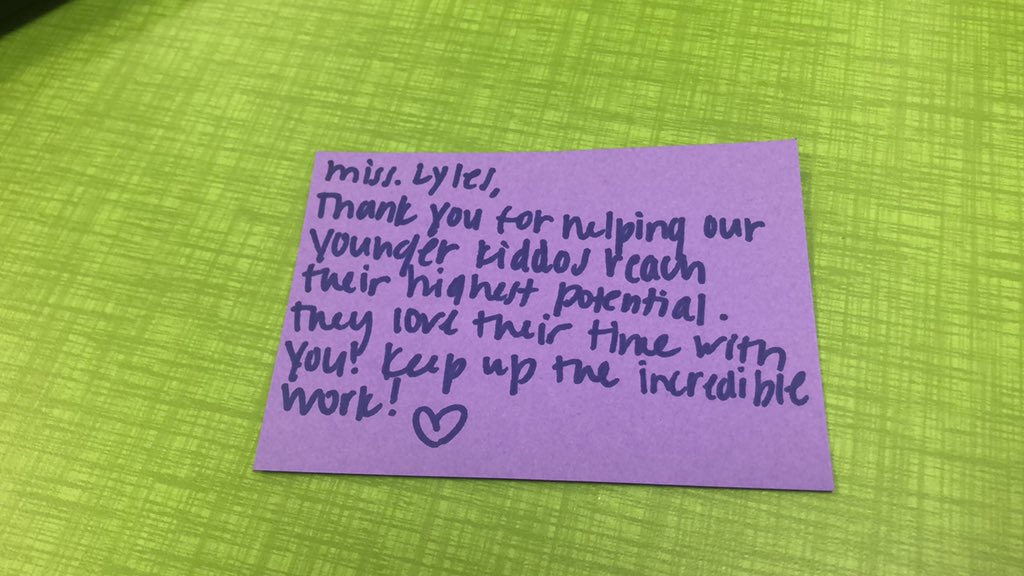 miss. Lyles,
Thank you for helping our
younger kiddos reach
their highest potential.
they love their time with
you! Keep up the incredible
work! ♡